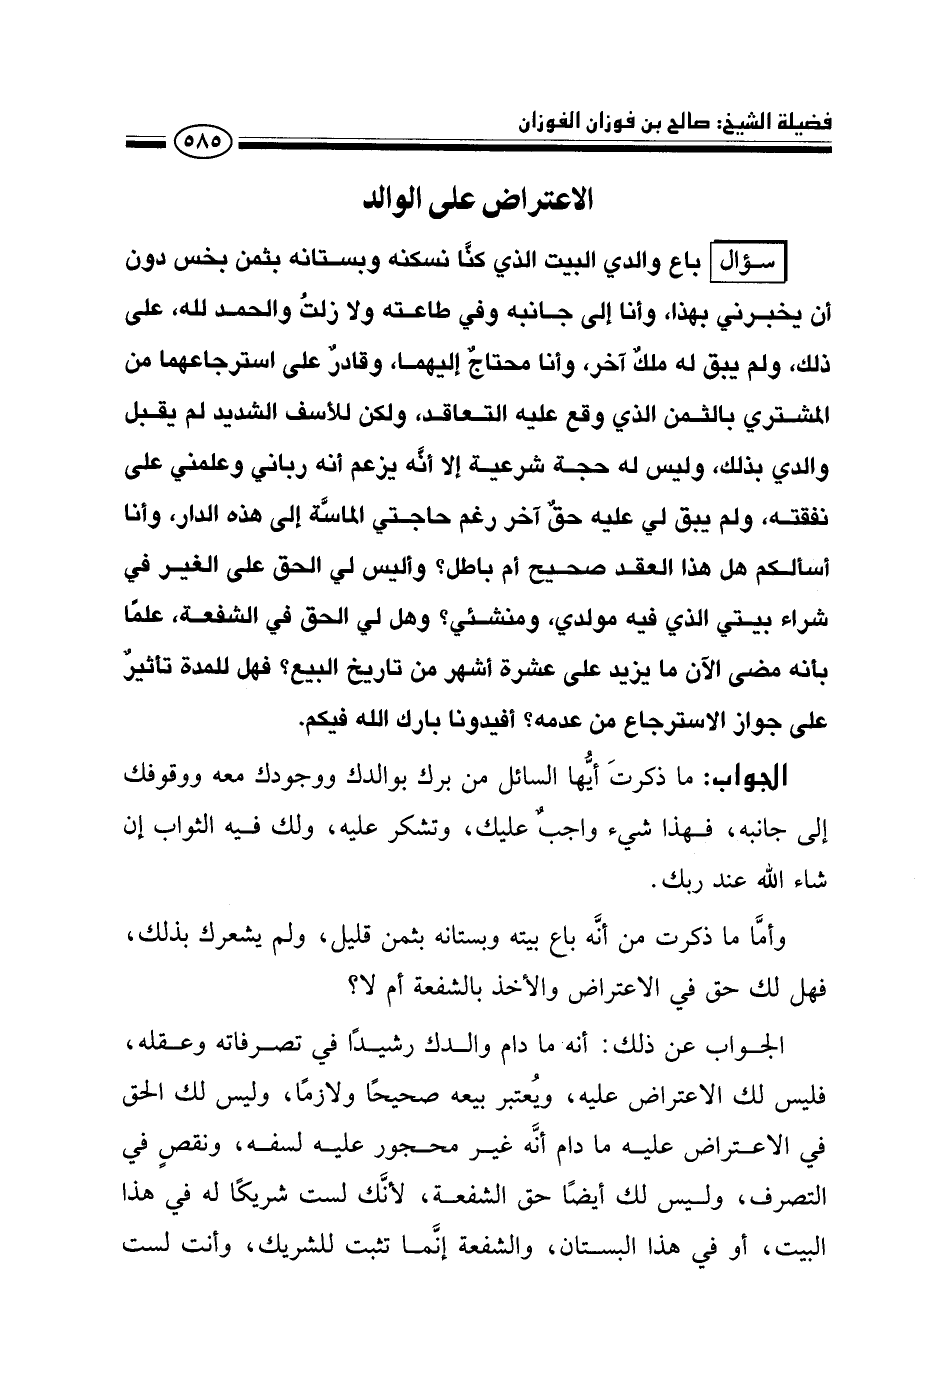 فضيلة الشيخ: صالح بن فوزان الفوزان
٥٨٥
الاعتراض على الوالد
سؤال باع والدي البيت الذي كنَّا نسكنه وبستانه بثمن بخس دون
أن يخبرني بهذا، وأنا إلى جانبه وفي طاعته ولا زلتُ والحمد لله، على
ذلك، ولم يبق له ملكٌ آخر، وأنا محتاجٌ إليهما، وقادرٌ على استرجاعهما من
المشتري بالثمن الذي وقع عليه التعاقد، ولكن للأسف الشديد لم يقبل
والدي بذلك، وليس له حجة شرعية إلا أنَّه يزعم أنه رباني وعلمني على
نفقته، ولم يبق لي عليه حقٌ آخر رغم حاجتي الماسَّة إلى هذه الدار، وأنا
أسألكم هل هذا العقد صحيح أم باطل؟ وأليس لي الحق على الغير في
شراء بيتي الذي فيه مولدي، ومنشئي؟ وهل لي الحق في الشفعة، علمًا
بأنه مضى الآن ما يزيد على عشرة أشهر من تاريخ البيع؟ فهل للمدة تأثيرٌ
على جواز الاسترجاع من عدمه؟ أفيدونا بارك الله فيكم.
الجواب: ما ذكرتَ أيُّها السائل من برك بوالدك ووجودك معه ووقوفك
إلى جانبه، فهذا شيء واجبٌ عليك، وتشكر عليه، ولك فيه الثواب إن
شاء الله عند ربك.
وأمَّا ما ذكرت من أنَّه باع بيته وبستانه بثمن قليل، ولم يشعرك بذلك،
فهل لك حق في الاعتراض والأخذ بالشفعة أم لا؟
الجواب عن ذلك: أنه ما دام والدك رشيدًا في تصرفاته وعقله،
فليس لك الاعتراض عليه، ويُعتبر بيعه صحيحًا ولازمًا، وليس لك الحق
في الاعتراض عليه ما دام أنَّه غير محجور عليه لسفه، ونقصٍ في
التصرف، وليس لك أيضًا حق الشفعة، لأنَّك لست شريكًا له في هذا
البيت، أو في هذا البستان، والشفعة إنَّما تثبت للشريك، وأنت لست